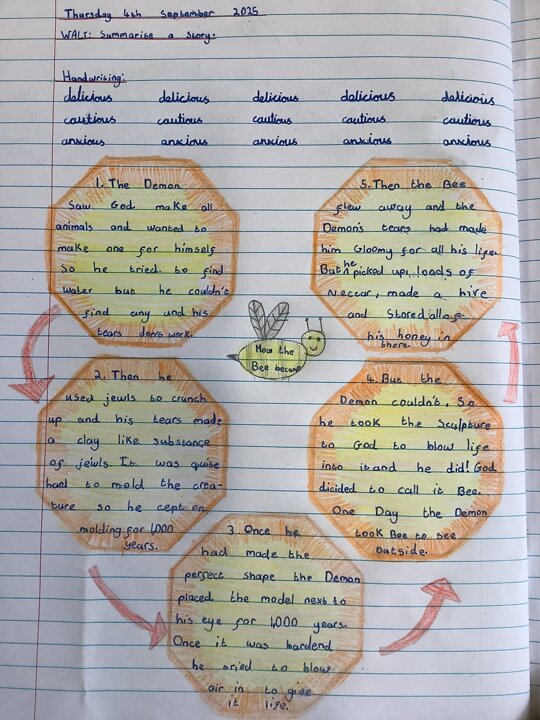 Thursday 4th September 2025
WALT: Summarise a story.
Handwriting:
delicious delicious delicious delicious delicious
cautious cautious cautious cautious cautious
anxious anxious anxious anxious anxious
1. The Demon
Saw God make all
animals and wanted to
make one for himself
So he tried to find
water but he couldn't
find any and his
tears don't work.
2. Then he
used jewls to crunch
up and his tears made
a clay like substance
of jewls. It was quite
hard to mold the crea-
ture so he cept on
molding for 1,000
years.
3. Once he
had made the
perfect shape the Demon
placed the model next to
his eye for 1,000 years.
Once it was hardend
he tried to blow
air in to give
it life.
4. But the
Demon couldn't, So
he took the Sculpture
to God to blow life
into it and he did! God
dicided to call it Bee.
One Day the Demon
took Bee to see
outside.
5. Then the Bee
flew away and the
Demon's tears had made
him Gloomy for all his life.
But he picked up loads of
Nectar, made a hive
and Stored all of
his honey in
there.
How the
Bee became